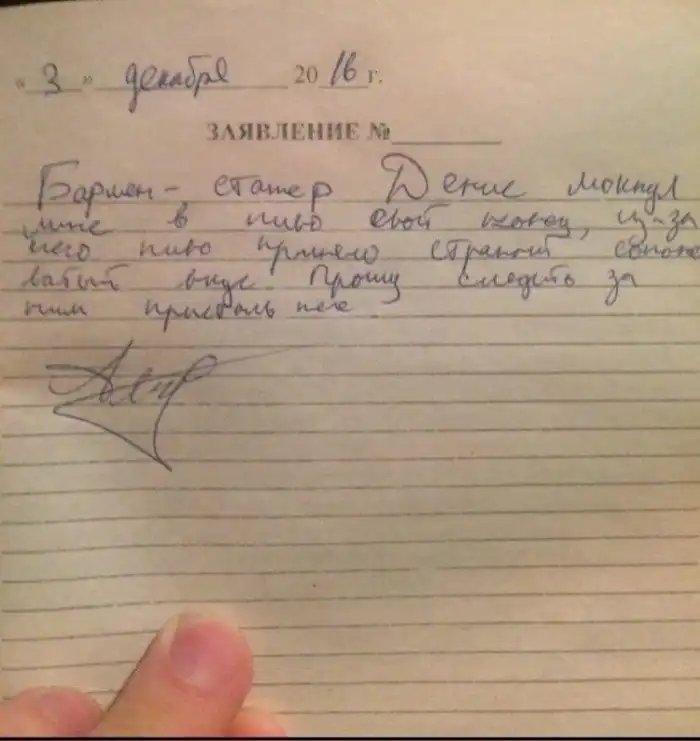 « 3 » декабря 2016 г.
ЗАЯВЛЕНИЕ №
Бармен - стажер Денис макнул
мне в пиво свой конец, из-за
чего пиво приняло странный солоно
ватый вкус. Прошу следить за
ним пристальнее